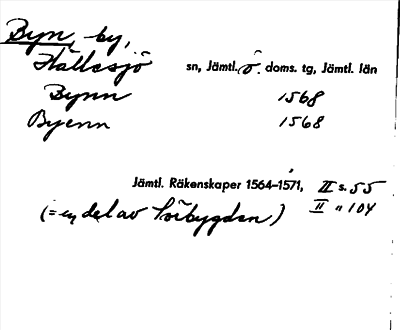 Byn, by,
Hällesjö sn, Jämtl. ö. doms. tg, Jämtl. län
Bynn 1568
Byenn 1568
Jämtl. Räkenskaper 1564–1571, II s. 55
II " 104
(= en del av Sörbygden)